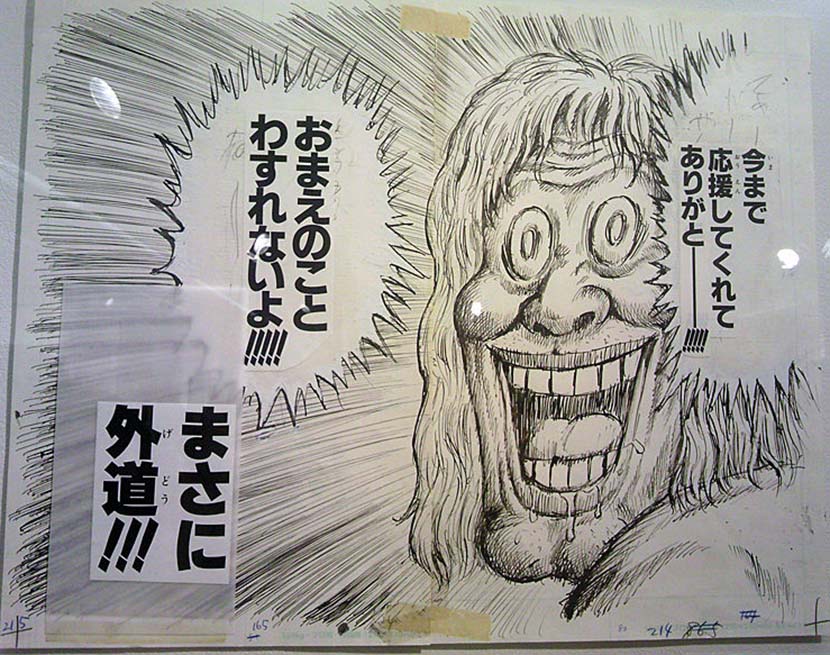 今まで
応援してくれて
ありがと――!!!!!
おまえのこと
わすれないよ!!!!!
まさに
外道!!!
215
165
214